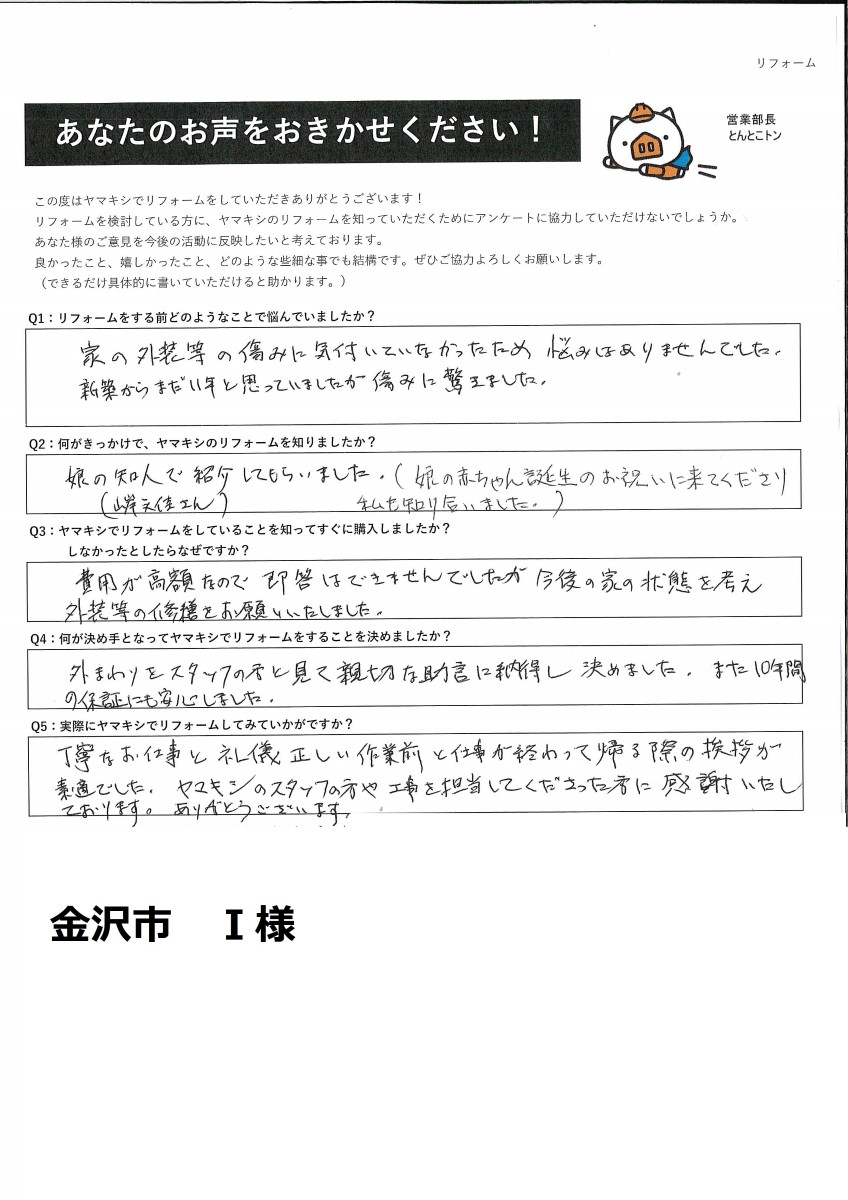 リフォーム
あなたのお声をおきかせください！
営業部長
とんとこトン
この度はヤマキシでリフォームをしていただきありがとうございます！
リフォームを検討している方に、ヤマキシのリフォームを知っていただくためにアンケートに協力していただけないでしょうか。
あなた様のご意見を今後の活動に反映したいと考えております。
良かったこと、嬉しかったこと、どのような些細な事でも結構です。ぜひご協力よろしくお願いします。
（できるだけ具体的に書いていただけると助かります。）
Q1：リフォームをする前どのようなことで悩んでいましたか？
家の外装等の傷みに気付いていなかったため 悩みはありませんでした。
新築からまだ11年と思っていましたが傷みに驚きました。
Q2：何がきっかけで、ヤマキシのリフォームを知りましたか？
娘の知人で紹介してもらいました。(娘の赤ちゃん誕生のお祝いに来てくださり
(山岸 佳さん) 私も知り合いました。)
Q3：ヤマキシでリフォームをしていることを知ってすぐに購入しましたか？
しなかったとしたらなぜですか？
費用が高額なので 即答はできませんでしたが 今後の家の状態を考え
外装等の修繕をお願いいたしました。
Q4：何が決め手となってヤマキシでリフォームをすることを決めましたか？
外まわりをスタッフの方と見て親切な助言に納得し 決めました。また10年間
の保証にも安心しました。
Q5：実際にヤマキシでリフォームしてみていかがですか？
丁寧なお仕事と礼儀正しい作業前と仕事が終わって帰る際の挨拶が
素適でした。ヤマキシのスタッフの方や工事を担当してくださった方に感謝いたし
ております。ありがとうございます。
金沢市　I様